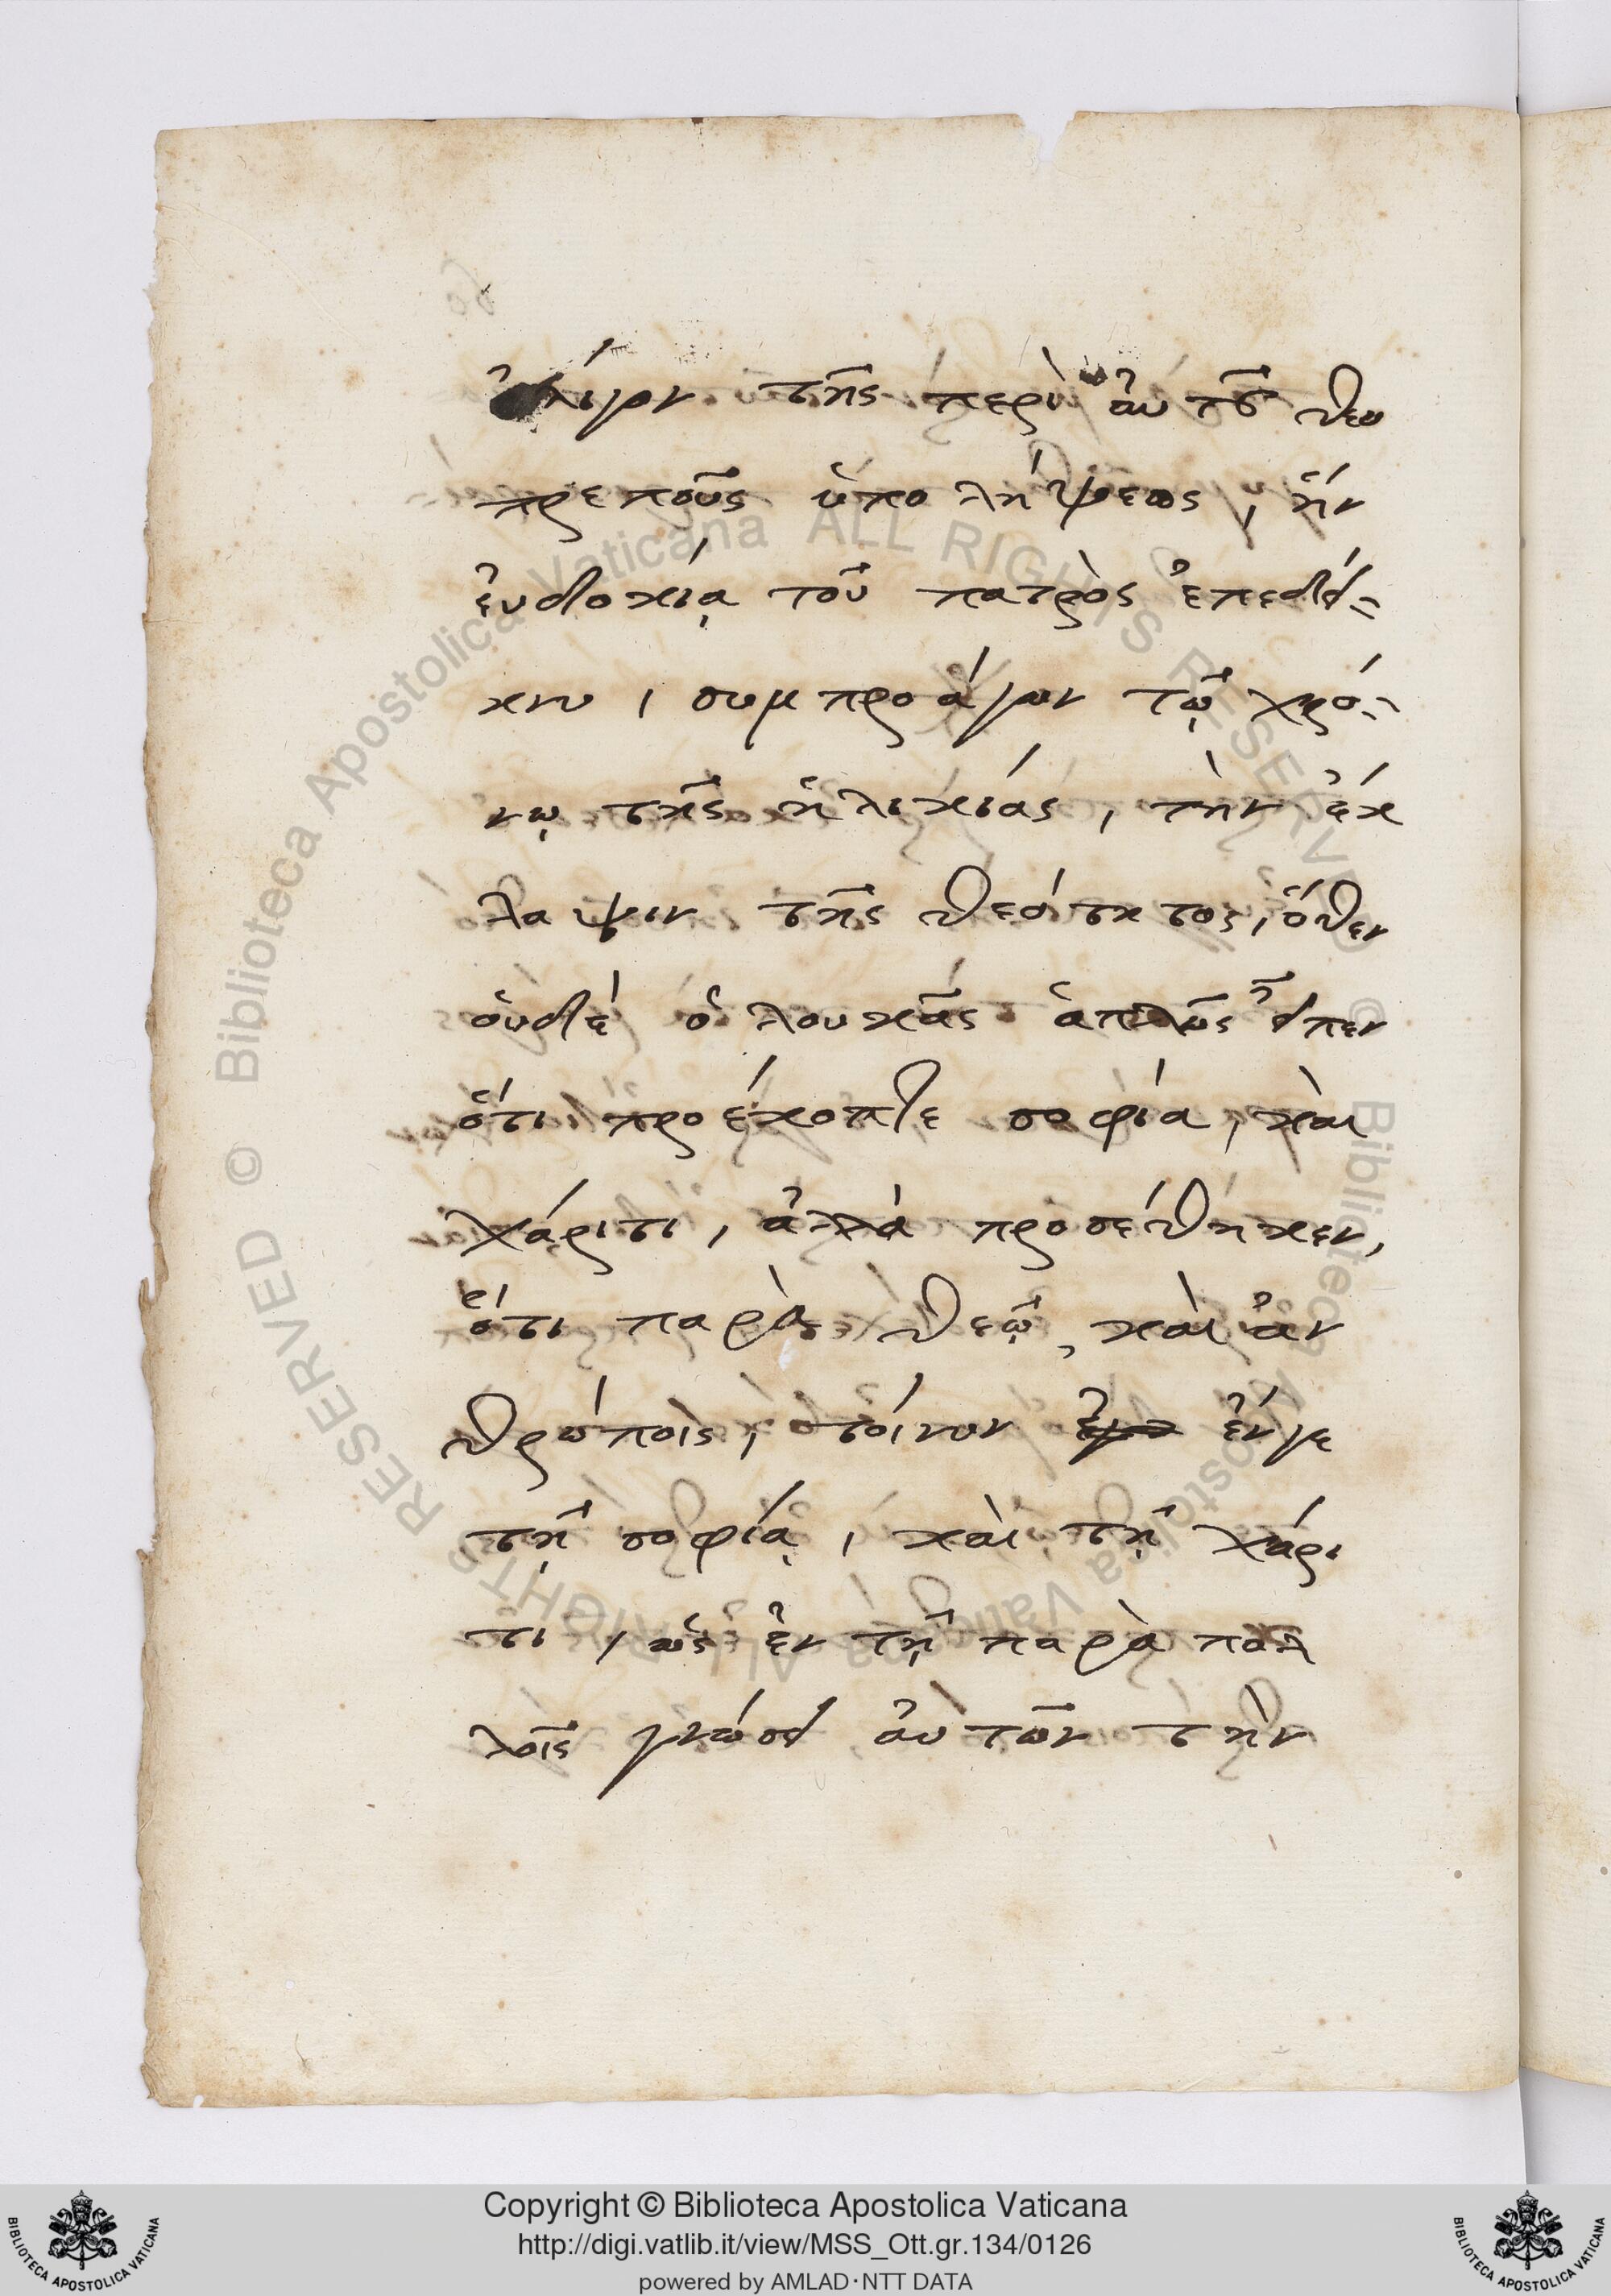 ὀλίγον τῆς περὶ ἀυτοῦ θεο
πρεποῦς ὑπολήψεως, ἣν
ἐυδοκίᾳ τοῦ πατρὸς ἐπεδεί-
κνυ, συμπροάγων τῷ χρό-
νῳ τῆς ἡλικιάς, τὴν ἔκ
λαψιν τῆς θεότητος, ὅθεν
ὀυδὲ ὁ λουκᾶς ἁπλῶς εἶπεν
ὅτι προέκοπτε σοφία, κὰι
χάριτι, ἀλλὰ προσέθηκεν,
ὅτι παρὰ θεῷ, κὰι ἀν
θρώποις, τοίνυν ἔνγε
τῇ σοφίᾳ, κὰι τῇ χάρι
τι, ὡς ἐν τῇ παρὰ πολ
λοῖς γνώσει ἀυτῶν τὴν
Copyright © Biblioteca Apostolica Vaticana
http://digi.vatlib.it/view/MSS_Ott.gr.134/0126
powered by AMLAD·NTT DATA
BIBLIOTECA APOSTOLICA VATICANA
BIBLIOTECA APOSTOLICA VATICANA
© Biblioteca Apostolica Vaticana ALL RIGHTS RESERVED
© Biblioteca Apostolica Vaticana ALL RIGHTS RESERVED